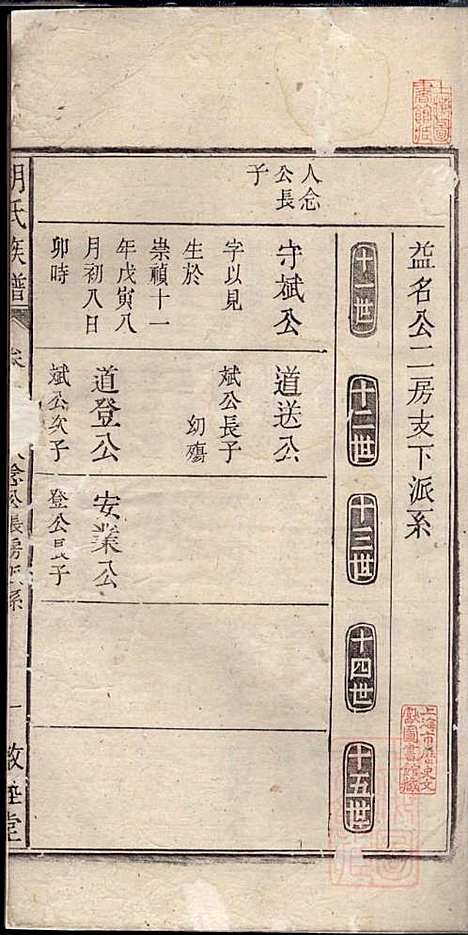 上海圖
書館藏
益名公二房支下派系
上海市歷史文
獻圖書館藏
十一世
十二世
十三世
十四世
十五世
人念
公長
子
守斌公
字以見
生於
崇禎十一
年戊寅八
月初八日
卯時
道送公
斌公長子
幼殤
道登公
斌公次子
安業公
登公長子
氏族譜
念公長房
系
一
敦睦堂